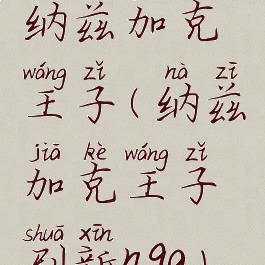 纳兹加克
wáng zǐ nà zī
王子(纳兹
jiā kè wáng zǐ
加克王子
shuā xīn
刷新nga)